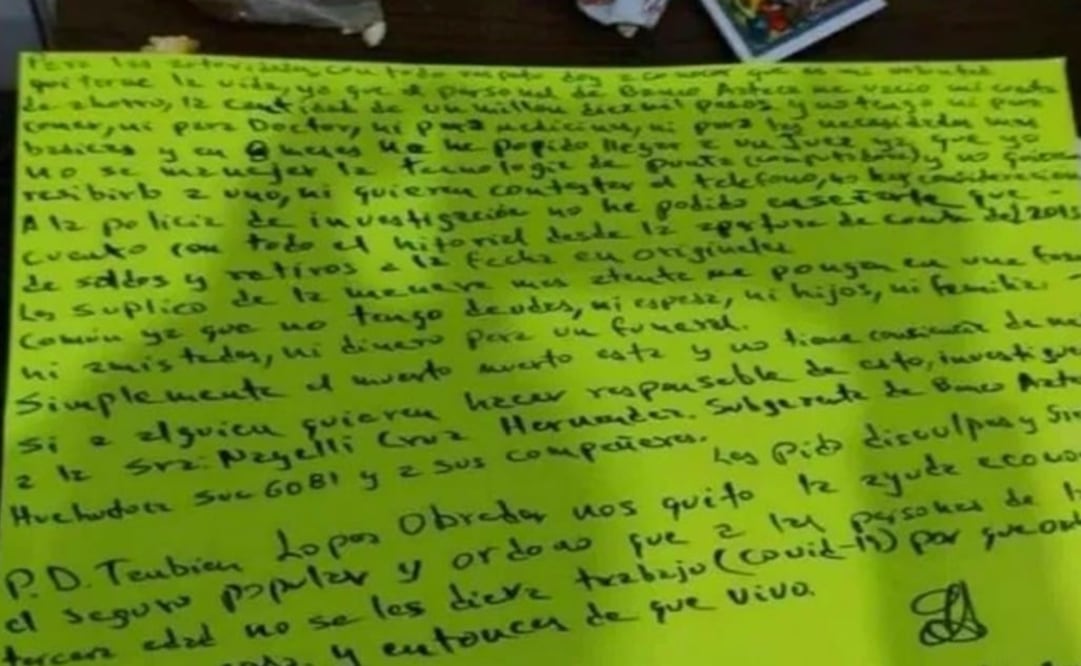 Para las autoridades, con todo respeto doy a conocer que es mi voluntad
quiterme la vida, ya que el personal de Banco Azteca me vacio mi cuenta
de ahorro, la cantidad de un millon diezmil pesos y no tengo ni para
comer, ni para Doctor, ni para medicinas, ni para las necesidades mas
basicas y en 8 meses no he podido llegar a un Juez ya que yo
no se manejar la tecnologia de punta (computadora) y no quieren
resibirlo a uno, ni quieren contestar el telefono, no hay consideracion
A la policia de investigación no he podido enseñarle que
cuento con todo el hitorial desde la apertura de cuenta del 2015
de saldos y retiros a la fecha en originales
Les suplico de la manera mas atenta me pongan en una fosa
común ya que no tengo deudos, ni esposa, ni hijos, ni familia
ni amistades, ni dinero para un funeral.
Simplemente el muerto muerto esta y no tiene conciencia de na
Si a alguien quieren hacer responsable de esto, investiguen
a la Sra. Nayelli Cruz Hernandez. Subgerente de Banco Azte
Huehuetoca Suc 6081 y a sus compañeros.
Les Pido disculpas y
P.D. Tanbien Lopes Obrador nos quito la ayuda econo
el seguro popular y ordeno que a las personas de la
tercera edad no se les diera trabajo (covid-19) por que
y entonces de que vivo.